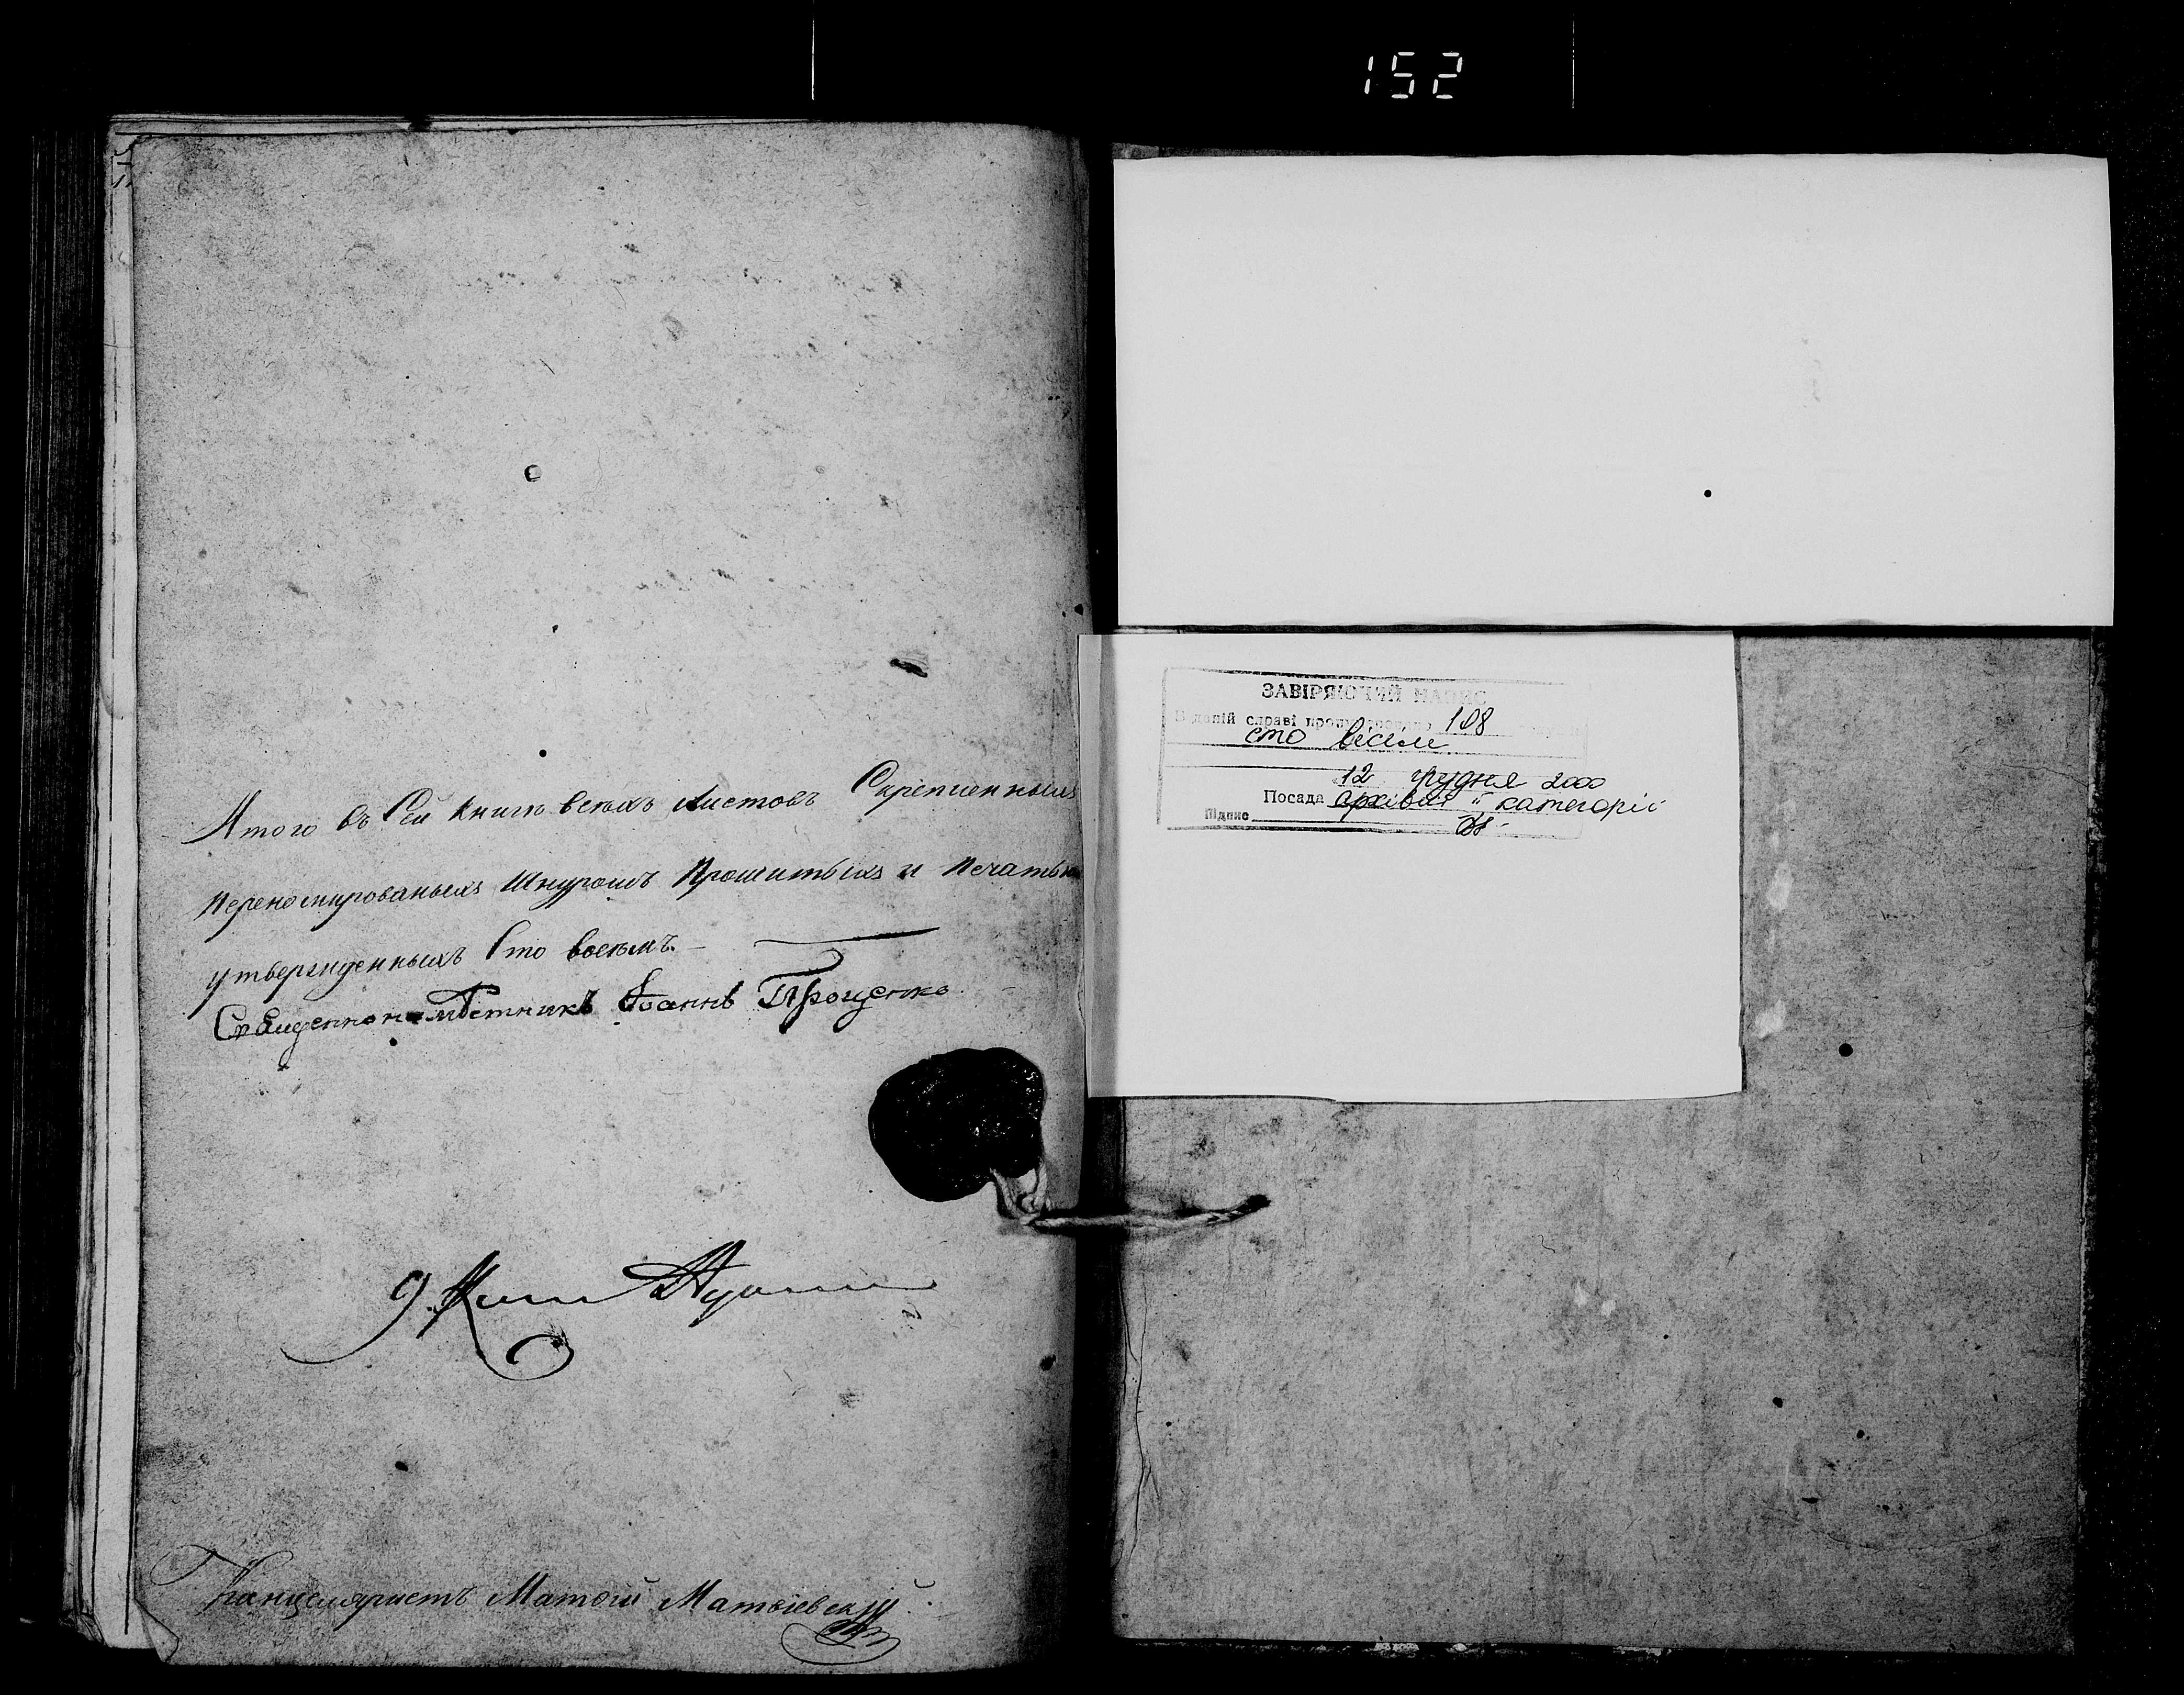 152
Итого въ Сей книгѣ всѣхъ листовъ Скрепленныхъ
перенумированыхъ Шнуромъ Прошитыхъ и печатью
утвержденныхъ Сто восемь.
Священнонамѣстникъ Іоаннъ Проценко
Канцеляристъ Матѳій Матвіевскій
ЗАВІРЯЮЧИЙ НАПИС
В даній справі 108
сто вісім
12 грудня 2000
Посада архівіст II категорії
Підпис